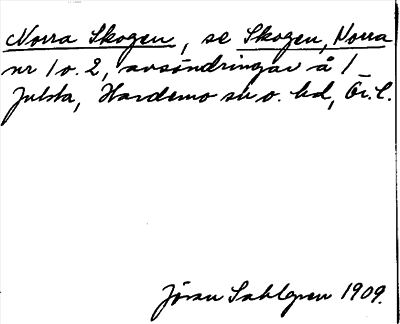 Norra Skogen, se Skogen, Norra
nr 1 o. 2, avsöndringar å 1
Julsta, Hardemo sn o. hd, Ör. l.
Jöran Sahlgren 1909.